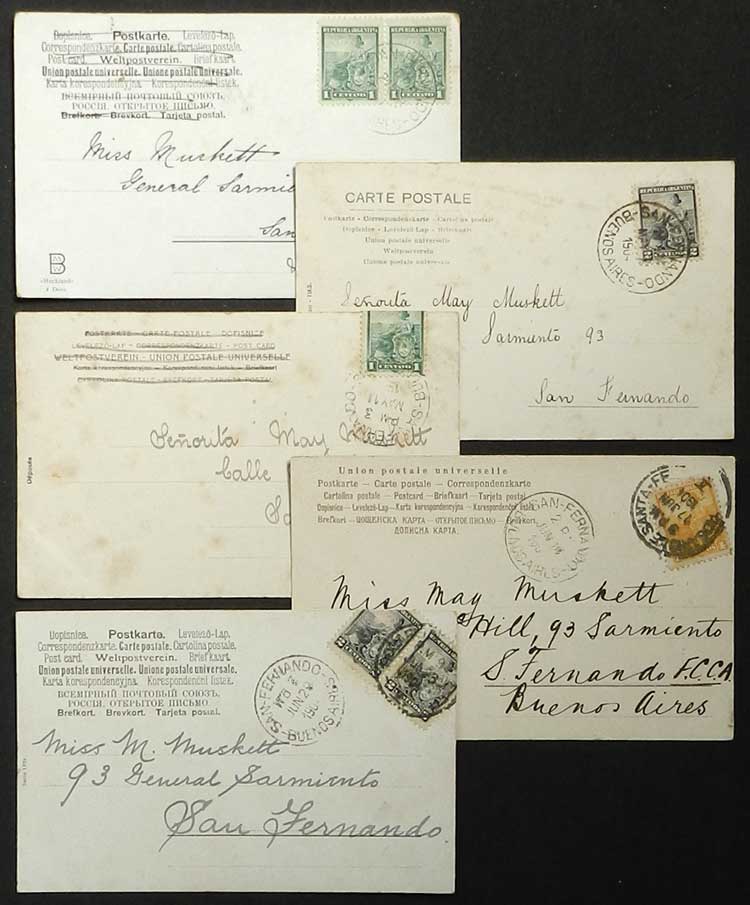 Dopisnica. Postkarte. Levelező-Lap.
Correspondenzkarte. Carte postale. Cartolina postale.
Post card Weltpostverein. Briefkaart
Union postale universelle. Unione postale universale.
Karta korespondencyjna Korespondenční lístek.
ВСЕМІРНЫЙ ПОЧТОВЫЙ СОЮЗЪ.
РОССІЯ. ОТКРЫТОЕ ПИСЬМО.
Brefkort. Brevkort. Tarjeta postal.
REPUBLICA ARGENTINA
1 CENTAVO 1
1 CENTAVO 1
Miss Muskett
General Sarmie
San
CARTE POSTALE
Postkarte - Correspondenzkarte - Cartolina postale
Dopisnice - Levelező-Lap - Briefkaart
Union postale universelle
Weltpostverein
Unione postale universale
REPUBLICA ARGENTINA
2 2
SAN-FERNANDO
BUENOS AIRES
Señorita May Muskett
Sarmiento 93
San Fernando
POSTKARTE - CARTE POSTALE DOPISNICE
LEVELEZŐ-LAP - CORRESPONDENZKARTE - POST CARD
WELTPOSTVEREIN - UNION POSTALE UNIVERSELLE
Karta korespondencyjna - Korespondenční lístek - Briefkaart
CARTOLINA POSTALE - BREFKORT - TARJETA POSTAL
1 CENTAVO 1
3 PM
MAY 11
Señorita May Muskett
Calle
Déposée
Union postale universelle
Postkarte - Carte postale - Correspondenzkarte
Cartolina postale - Postcard - Briefkaart - Tarjeta postal
Dopisnice - Levelező-Lap - Karta korespondencyjna - Korespondenční lístek
Brefkort - ЦОЩЕНСКА КАРТА - ОТКРЫТОЕ ПИСЬМО - Brevkort
ДОПИСНА КАРТА.
SAN-FERNAN
JUN
SANTA-FE
Miss May Muskett
Hill, 93 Sarmiento
S. Fernando F.C.C.A.
Buenos Aires
Dopisnica. Postkarte. Levelező-Lap.
Correspondenzkarte. Carte postale. Cartolina postale.
Post card Weltpostverein. Briefkaart
Union postale universelle. Unione postale universale.
Karta korespondencyjna Korespondenční lístek.
ВСЕМІРНЫЙ ПОЧТОВЫЙ СОЮЗЪ.
РОССІЯ. ОТКРЫТОЕ ПИСЬМО.
Brefkort. Brevkort. Tarjeta postal.
SAN-FERNANDO
JUN 2
BUENOS AIRES
Miss M. Muskett
93 General Sarmiento
San Fernando.